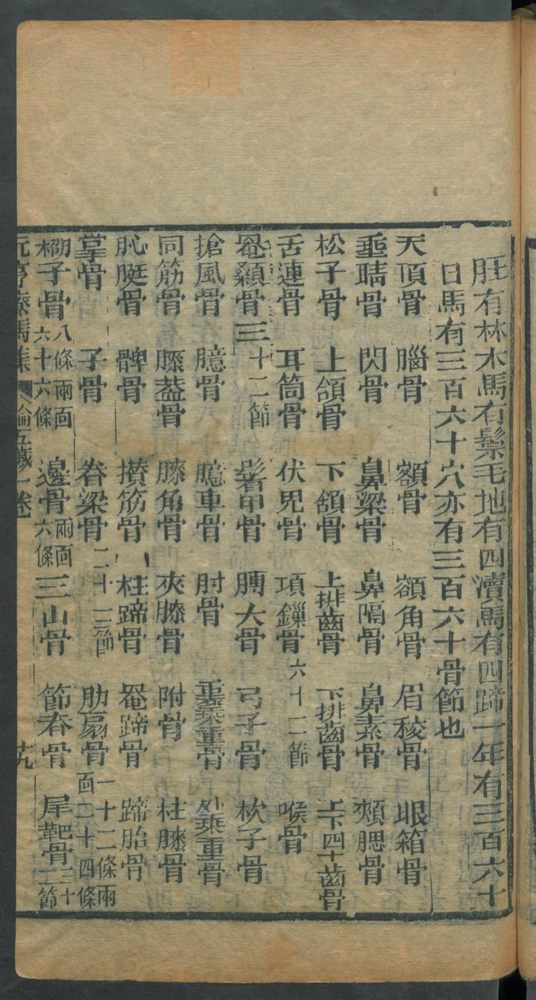 旺有林木馬有鬃毛地有四瀆馬有四蹄一年有三百六十
日馬有三百六十穴亦有三百六十骨節也
天頂骨 腦骨 額骨 額角骨 眉稜骨 眼箱骨
垂睛骨 閃骨 鼻梁骨 鼻隔骨 鼻素骨 頰腮骨
松子骨 上頷骨 下頷骨 上排齒骨 下排齒骨 上下四十齒骨
舌連骨 耳筒骨 伏兕骨 項鏁骨六十二節 喉骨
骨三十二節 髻甲骨 膊大骨 弓子骨 枕子骨
搶風骨 臆骨 臆車骨 肘骨 乘重骨 外乘重骨
同筋骨 膝蓋骨 膝角骨 夾膝骨 附骨 柱膝骨
骨 髀骨 攢筋骨 柱蹄骨 蹄骨 蹄胎骨
掌骨 子骨 脊梁骨二十二節 肋扇骨一十二條兩面二十四條
槅子骨八條兩面六十六條 邊骨兩面六條 三山骨 節脊骨 尾靶骨三十二節
元亨療馬集 論五臟一卷 十九